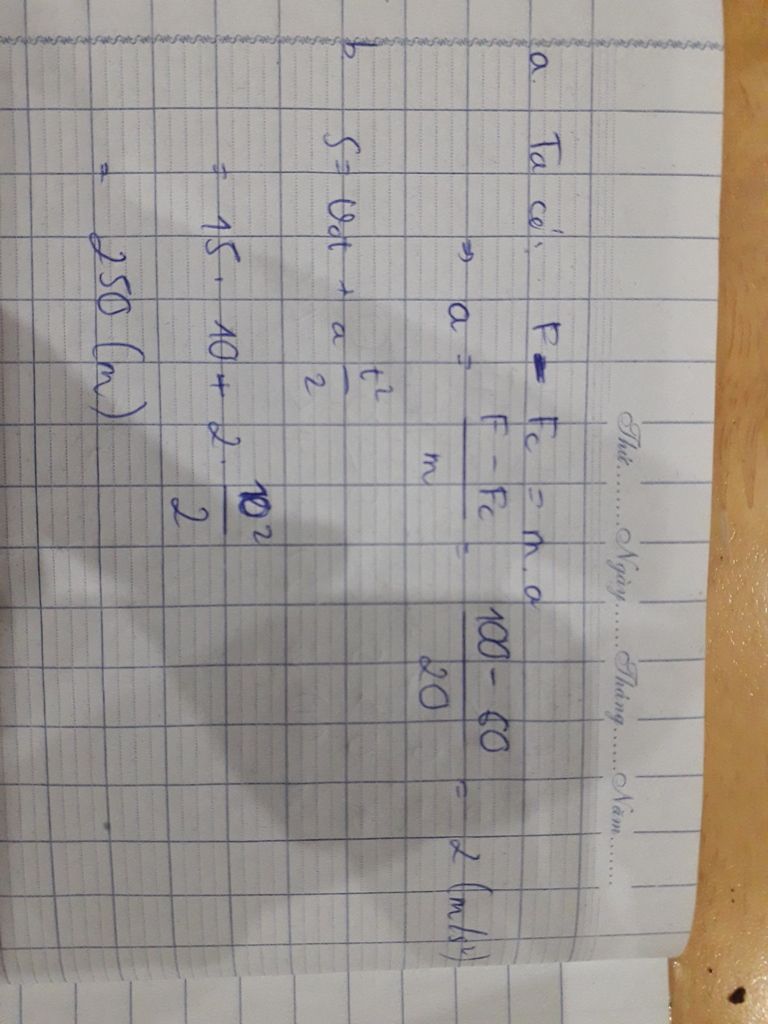 Thứ........Ngày......Tháng......Năm.......
a. Ta có: F - Fc = m.a
=> a = (F - Fc)/m = (100 - 60)/20 = 2 (m/s²)
b
S = v₀t + a t²/2
= 15. 10 + 2. 10²/2
= 250 (m)